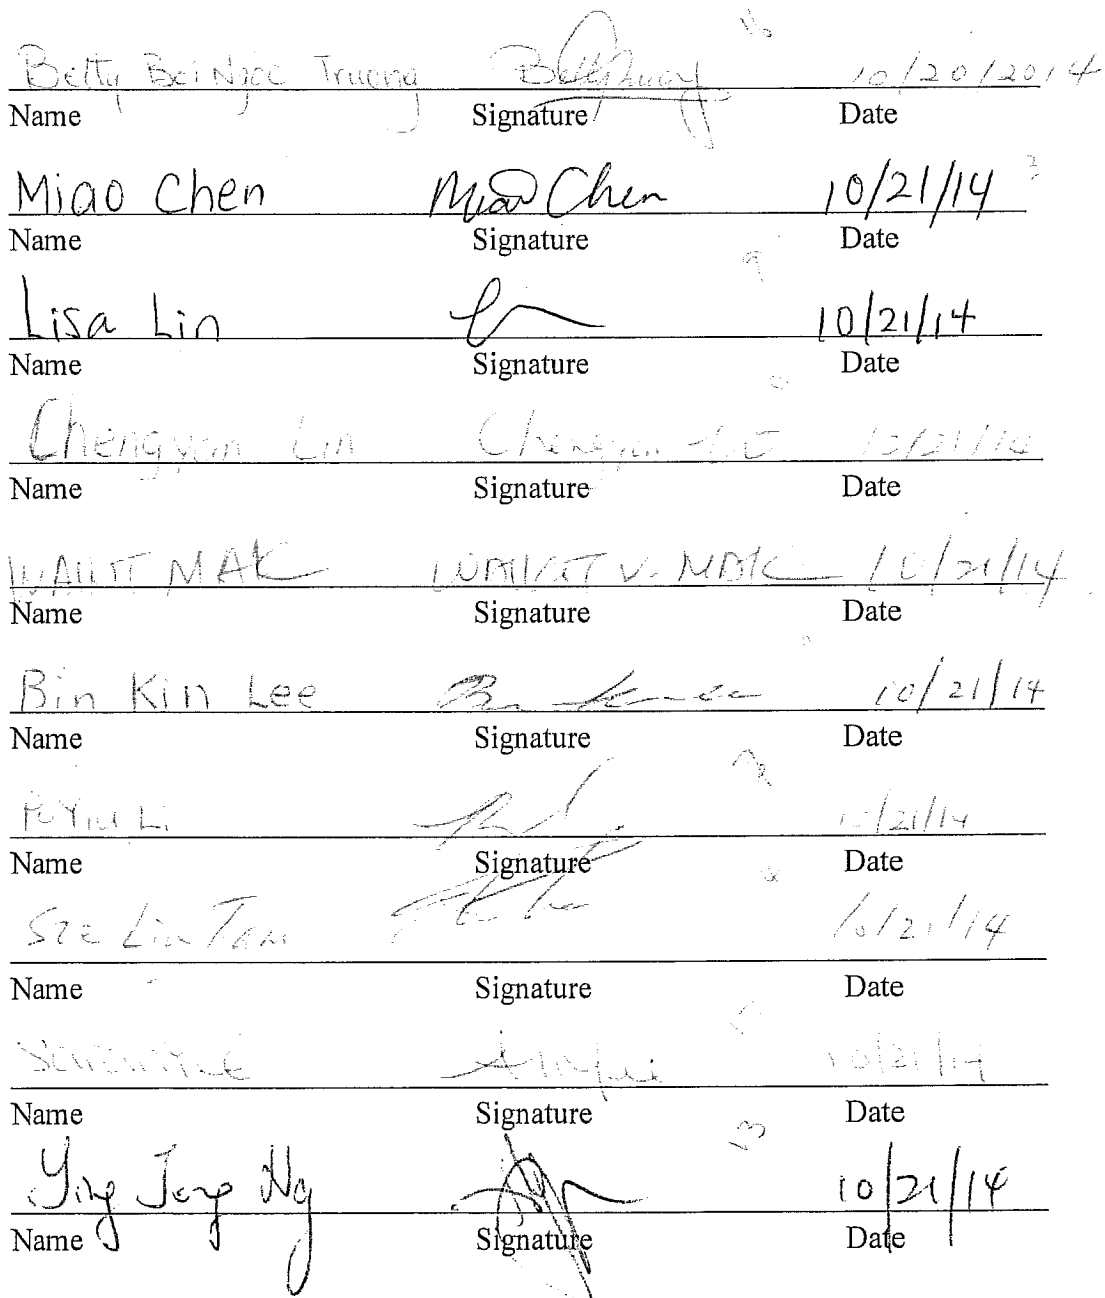 Betty Bei Ngoc Truong Betty Truong 10/20/2014
Name Signature Date
Miao Chen Miao Chen 10/21/14
Name Signature Date
Lisa Lin 10/21/14
Name Signature Date
Chengyan Lin Chengyan 10/21/14
Name Signature Date
MAK V. MAK 10/21/14
Name Signature Date
Bin Kin Lee 10/21/14
Name Signature Date
Yiu Li 10/21/14
Name Signature Date
Sze Lin Tam 10/21/14
Name Signature Date
10/21/14
Name Signature Date
Ying Jong Ng 10/21/14
Name Signature Date